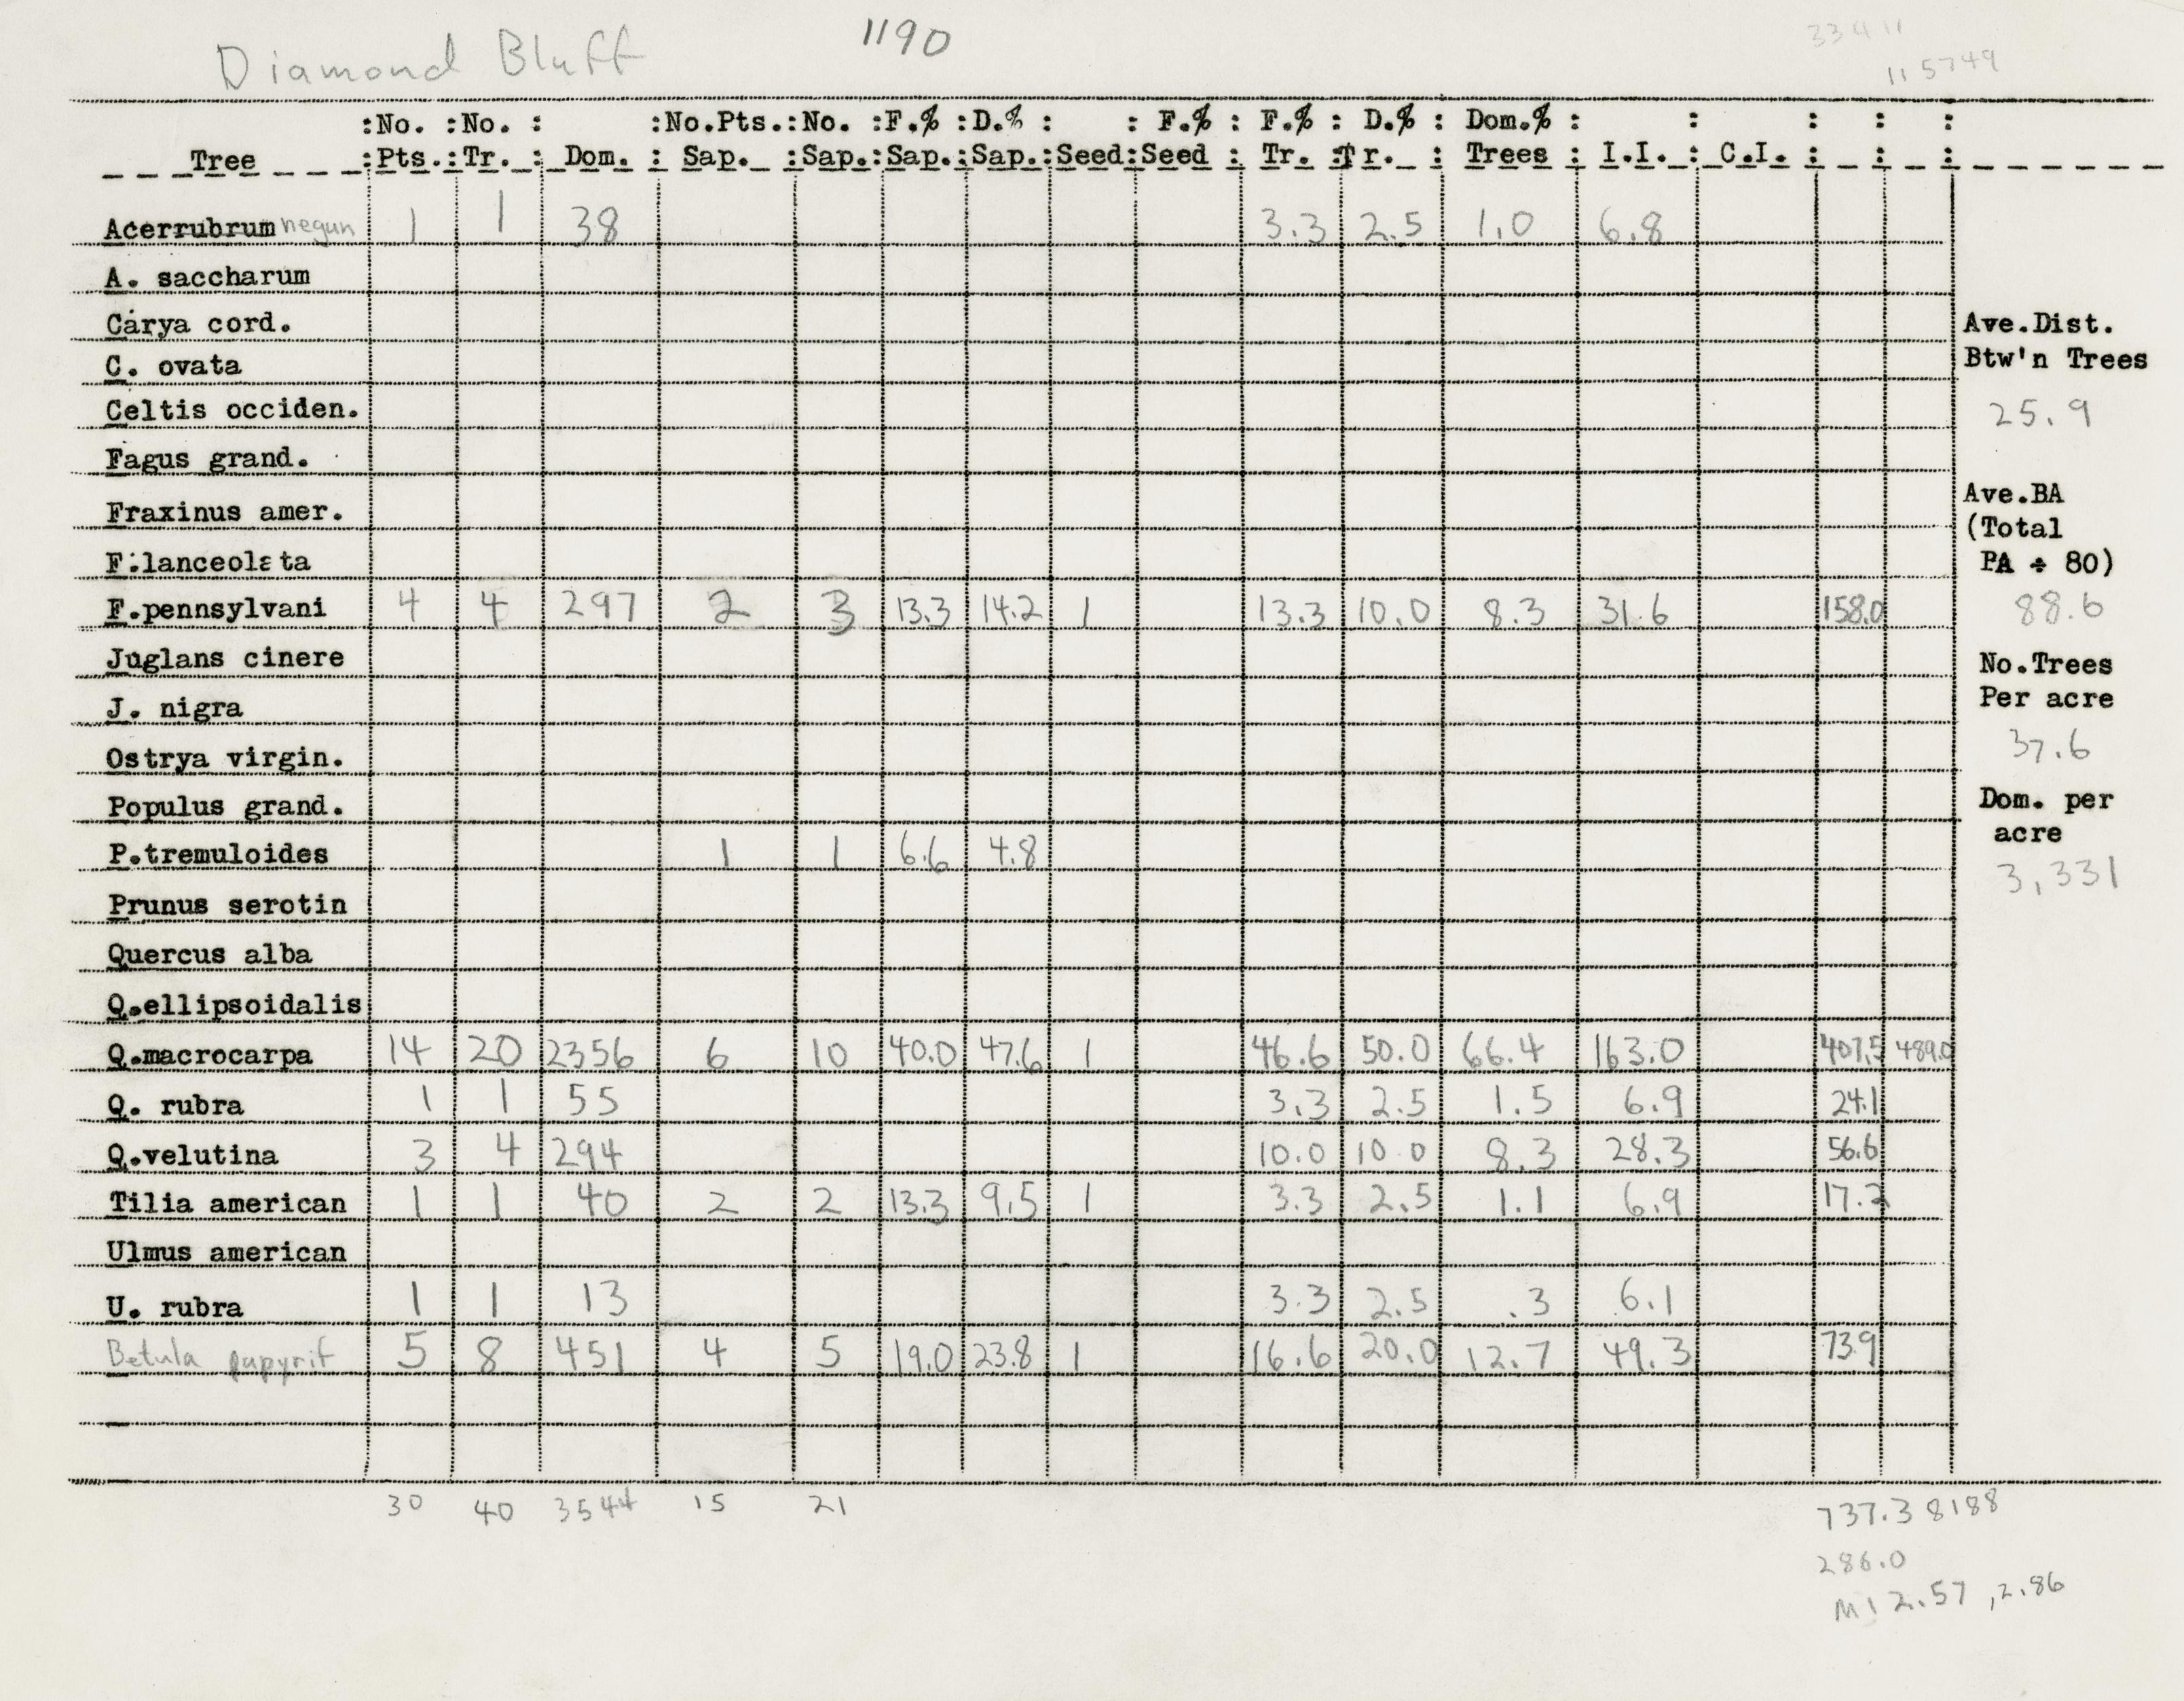 Diamond Bluff 1190 33411
115749
:No. :No. : :No.Pts.:No. :F.% :D.% : : F.% : F.% : D.% : Dom.% : : : : :
Tree :Pts.:Tr. : Dom. : Sap. :Sap.:Sap.:Sap.:Seed:Seed : Tr. :Tr. : Trees : I.I. : C.I. : : :
Acerrubrum negun 1 1 38 3.3 2.5 1.0 6.8
A. saccharum
Carya cord.
Ave.Dist.
Btw'n Trees
C. ovata
Celtis occiden.
25.9
Fagus grand.
Ave.BA
Fraxinus amer.
(Total
F.lanceolata
BA ÷ 80)
F.pennsylvani 4 4 297 2 3 13.3 14.2 1 13.3 10.0 8.3 31.6 158.0
88.6
Juglans cinere
No.Trees
Per acre
J. nigra
37.6
Ostrya virgin.
Populus grand.
Dom. per
acre
P.tremuloides 1 1 6.6 4.8
3,331
Prunus serotin
Quercus alba
Q.ellipsoidalis
Q.macrocarpa 14 20 2356 6 10 40.0 47.6 1 46.6 50.0 66.4 163.0 407.5 489.0
Q. rubra 1 1 55 3.3 2.5 1.5 6.9 24.1
Q.velutina 3 4 294 10.0 10.0 8.3 28.3 56.6
Tilia american 1 1 40 2 2 13.3 9.5 1 3.3 2.5 1.1 6.9 17.2
Ulmus american
U. rubra 1 1 13 3.3 2.5 .3 6.1
Betula papyrif 5 8 451 4 5 19.0 23.8 1 16.6 20.0 12.7 49.3 73.9
30 40 3544 15 21 737.3 8188
286.0
M1 2.57, 2.86